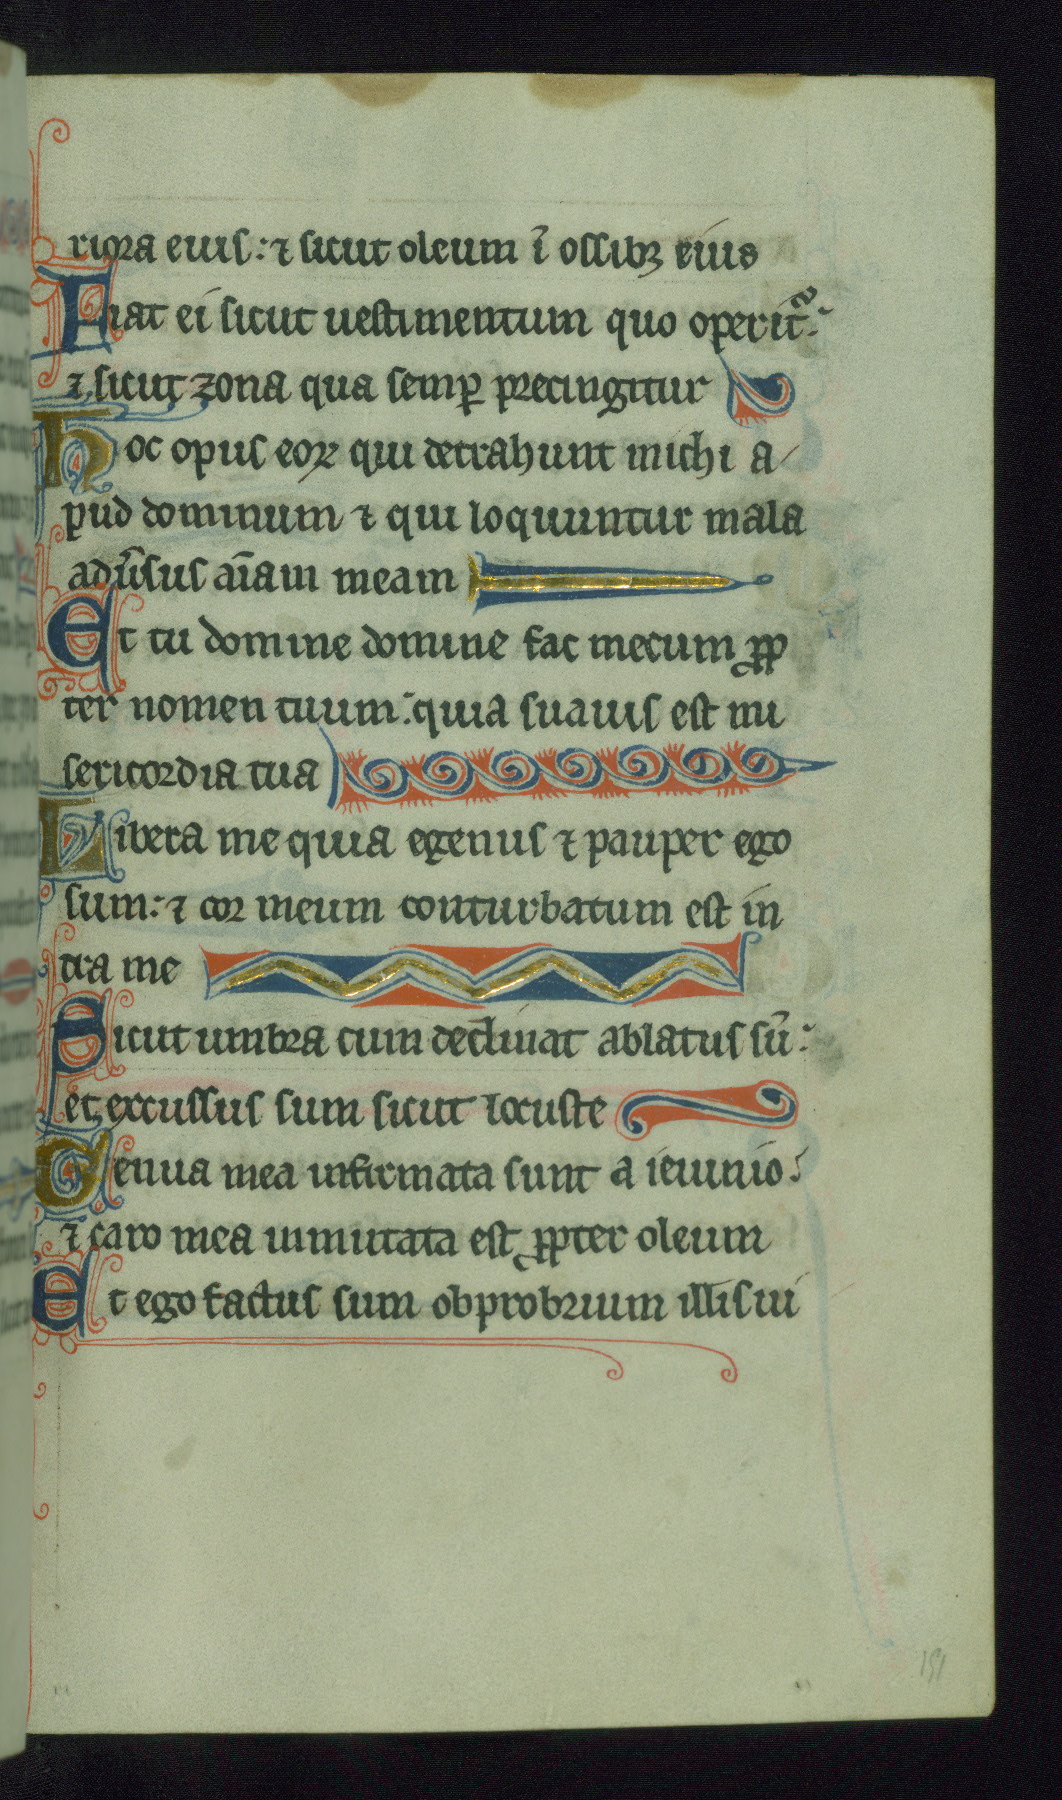 riora eius: ⁊ sicut oleum ī ossibꝫ eius
Fiat ei sicut uestimentum quo operit᷑:
⁊ sicut zona qua semꝑ precingitur
Hoc opus eoꝝ qui detrahunt michi a
pud dominum ⁊ qui loquuntur mala
adūsus aīam meam
Et tu domine domine fac mecum ꝓp
ter nomen tuum: quia suauis est mi
sericordia tua
Libera me quia egenus ⁊ pauper ego
sum: ⁊ cor meum conturbatum est in
tra me
Sicut umbra cum declinat ablatus sū:
et excussus sum sicut locuste
Genua mea infirmata sunt a ieiunio:
⁊ caro mea inmutata est ꝓpter oleum
Et ego factus sum obprobrium illis ui
151